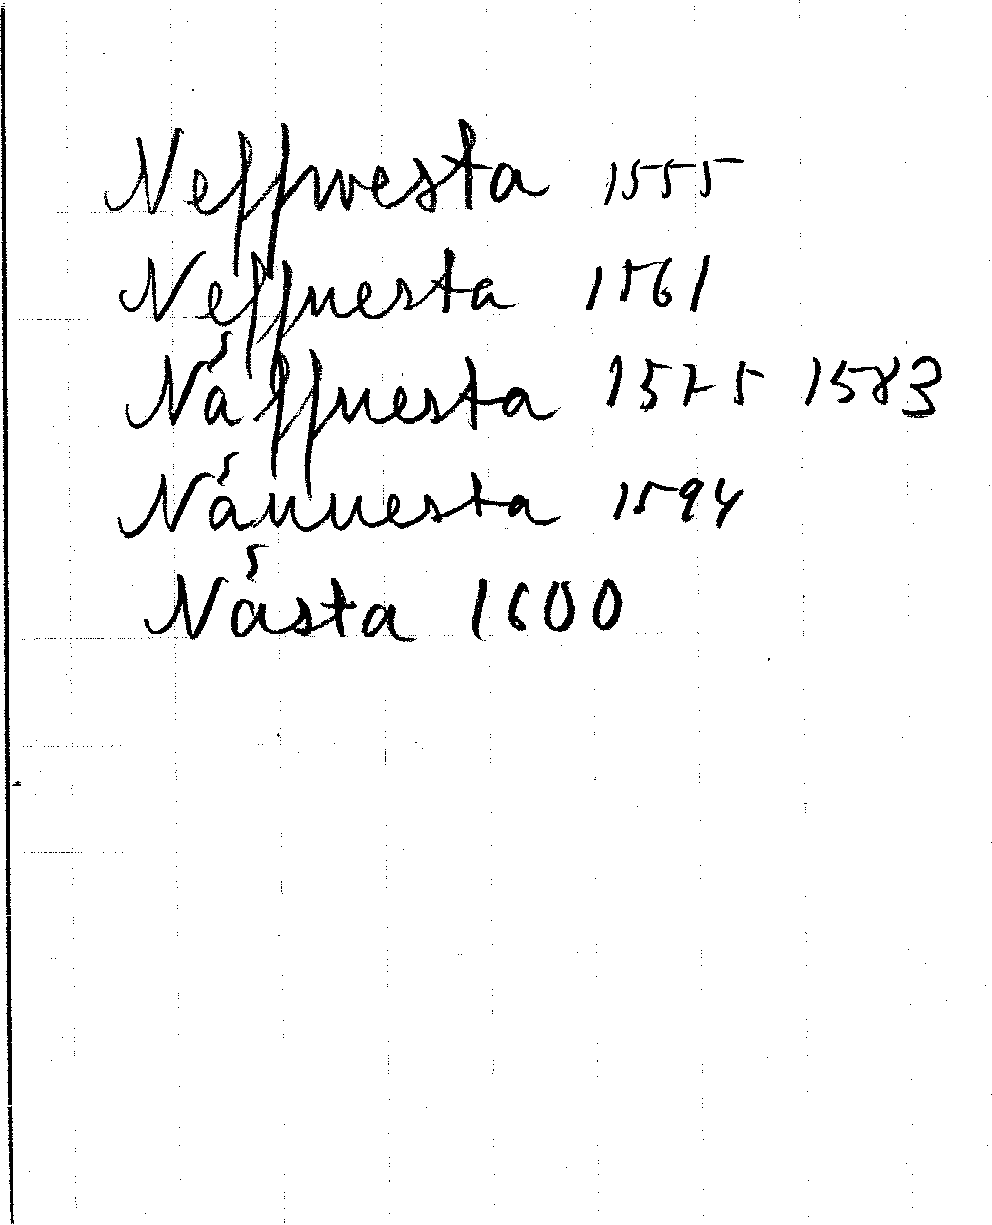 Neffwesta 1555
Neffuesta 1561
Nåffuesta 1575 1583
Nånuesta 1594
Nåsta 1600